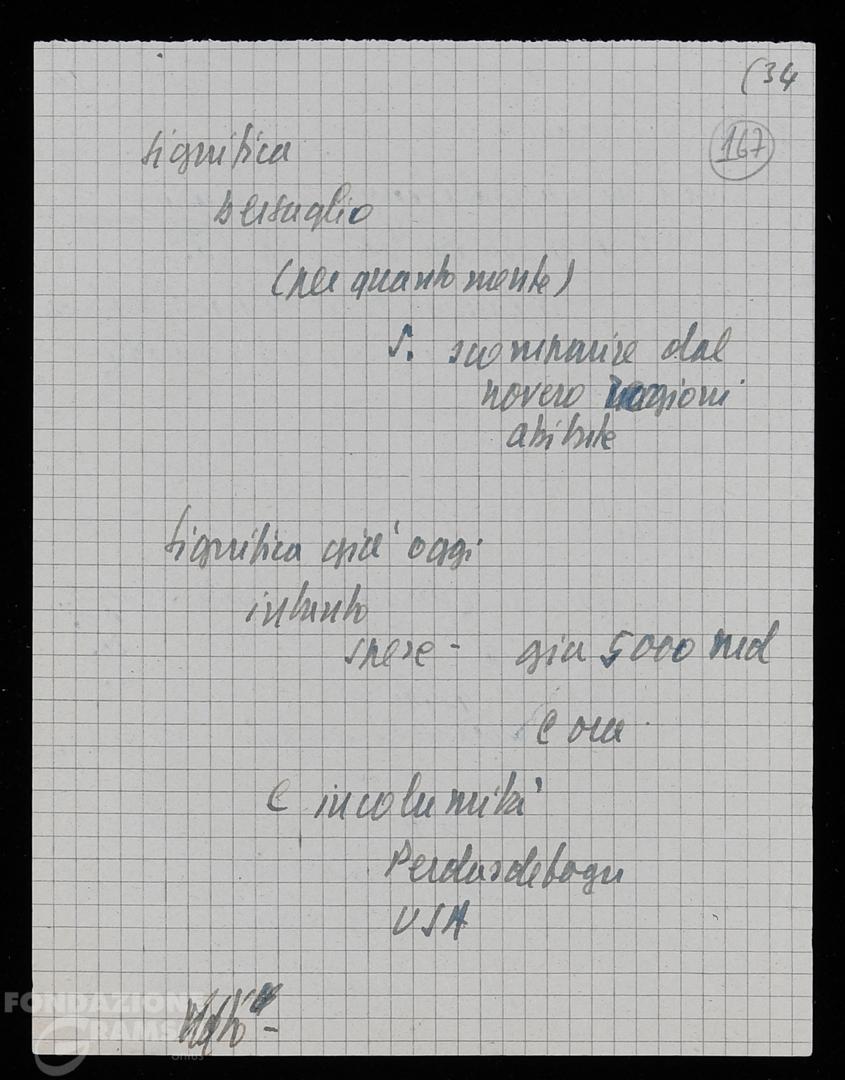 (34
167
significa
bersaglio
(per quanto mente)
S. scomparire dal
novero regioni
abitate
significa già oggi
intanto
spese - già 5000 med
e ora
e incolumità
Perdasdefogu
USA
FONDAZIONE
GRAMSCI
onlus